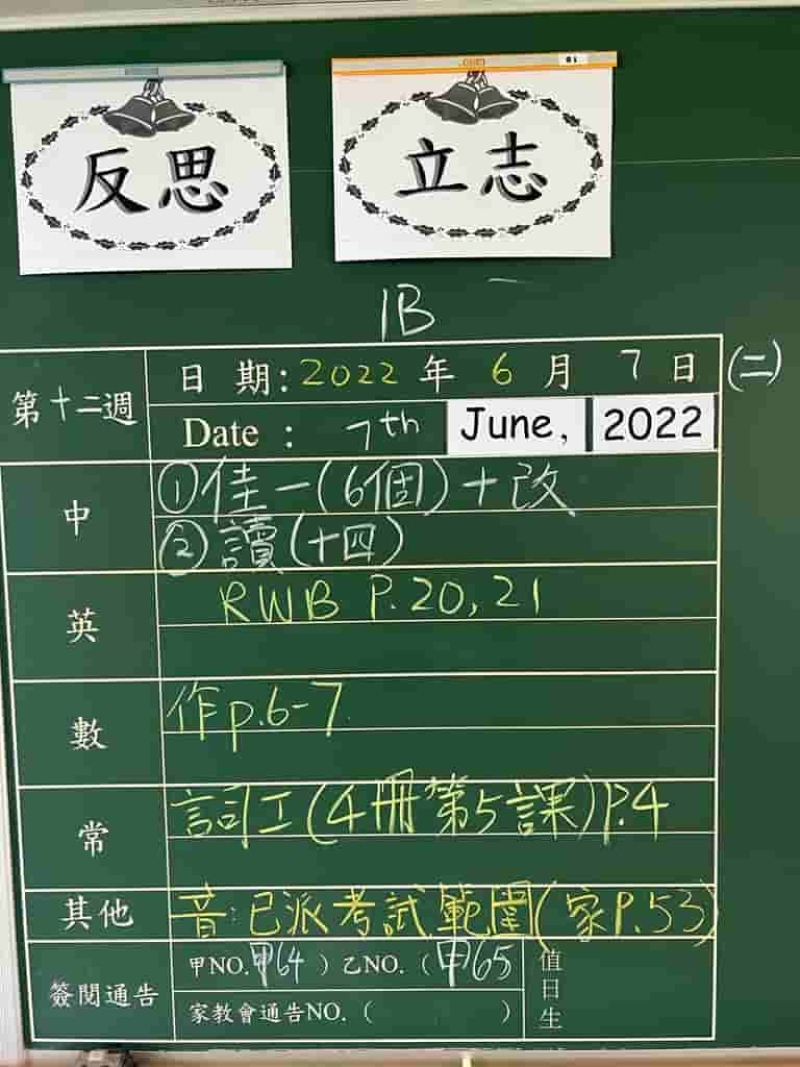 反思
立志
1B
第十二週
日 期:2022 年 6 月 7 日 (二)
Date : 7th June, 2022
中
①佳一(6個)+改
②讀(十四)
英
RWB P.20,21
數
作p.6-7
常
詞工(4冊第5課)P.4
其他
音:已派考試範圍(家P.53)
簽閱通告
甲NO. 甲64 ) 乙NO. ( 甲65
家教會通告NO. ( )
值日生